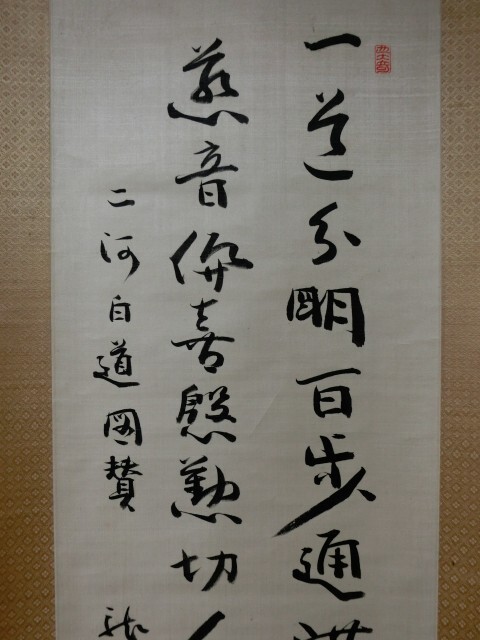 一道分明百步通
慈音併喜慇懃切
二河白道図賛